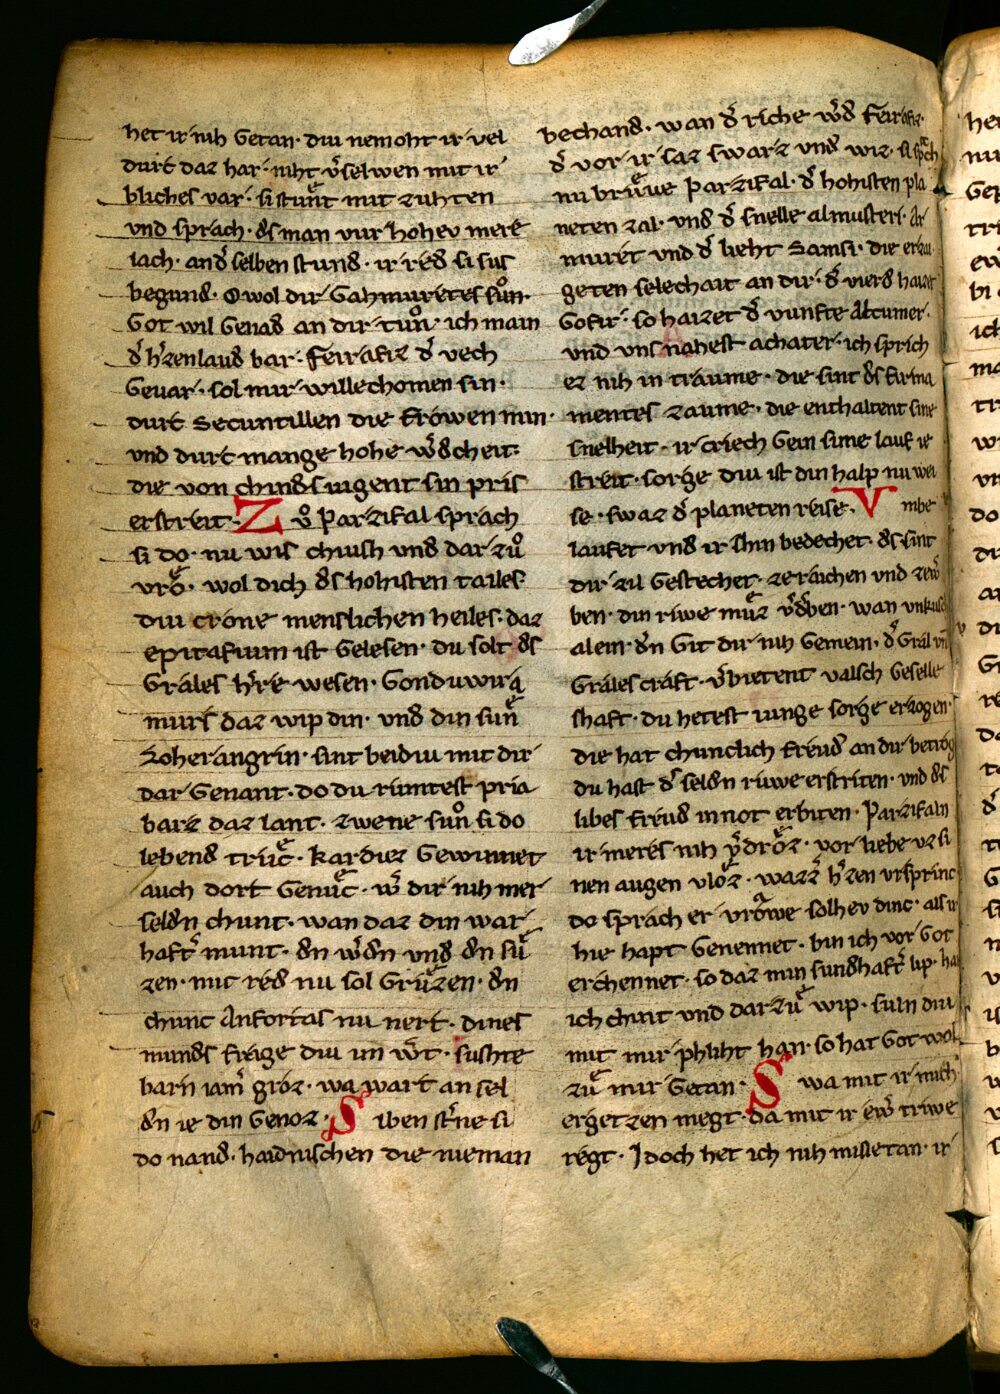 het ir nih Getan · diu nemoht ir vel
durt daz har · niht v̉selwen mit ir
bliches var · si stuͤnt mit zuhten
vnd sprach · ds man vur hohev mere
iach · and̉ selben stund · ir red si sus
begund · O wol dir Gahmuretes suͦn ·
Got wil Genad an dir tuͦn · ich main
d̉ h̉zenlaud bar · Ferrafiz d̉ vech
Gevar · sol mir willechomen sin ·
durt Secuntillen die froͮwen min ·
und durt mange hohe ẘdcheit ·
die von chinds iugent sin pris
erstreit · Z uͦ Parzifal sprach
si do · nu wis chiush und dar zuͦ
vro · wol dich ds hohisten tailes
diu crone menslichen heiles · daz
epitafium ist Gelesen · du solt ds
Grales h̉re wesen · Gonduwira
murs daz wip din · und din suͤn
Loherangrin · sint beidiu mit dir
dar Genant · do du rumtest pria
barz daz lant · zwene suͦn si do
lebend truͤc · kardiez Gewinnet
auch dort Genuͤc · ẘ dir nih mer
seldn chunt · wan daz din war
haft̉ munt · dn ẘdn und dn suͤ
zen · mit red nu sol Gruͤzen · dn
chunc Anfortas nu nert · dines
munds frage diu im ẘt · sushte
barn iam̉ groz · wa wart an sel
dn ie din Genoz · S iben st̉ne si
do nand · haidnischen die nieman
bechand · wan d̉ riche ẘd Feirafiz ·
d̉ vor ir saz swarz und wiz · si sprach
nu bruͤwe Parzifal · d̉ hohisten pla
neten zal · und d̉ snelle almusteri · Al
muret und d̉ lieht Samsi · die erzai
geten selechait an dir · d̉ vierd haizet
Gofir · so haizet d̉ vunfte Alcumer ·
und vns nahest achater · ich sprich
ez nih in traume · die sint ds firma
mentes zaume · die enthaltent sine
snelheit · ir criech Gein sime lauf ie
streit · sorge diu ist din halp nu wei
se · swaz d̉ planeten reise · V mbe
laufet und ir shin bedechet · ds sint
dir zil Gestechet · zeraichen und zeẘ
ben · din riwe muͤz v̉d̉ben · wan
alein · dn Git dir nih Gemein · d̉ Gral vn
Grales craft · v̉bietent valsch Geselle
shaft · du hetest iunge sorge erzogen ·
die hat chunclich freud an dir betrog
du hast d̉ seldn ruwe erstriten · und ds
libes freud innot erbiten · Parzifaln
ir meres nih v̉droͤz · vor liebe vz si
nen augen vloͤz · wazz̉ h̉zen vrsprinc
do sprach er vroͮwe solhev dinc · als ir
hie hapt Genennet · bin ich vor Got
erchennet · so daz min sundhaft̉ lip · ha
ich chint und darzuͤ wip · suln diu
mit mir phliht han · so hat Got wol
zuͤ mir Getan · S wa mit ir mich
ergetzen megt · da mit ir eẘ triwe
regt · Idoch het ich nih missetan · ir